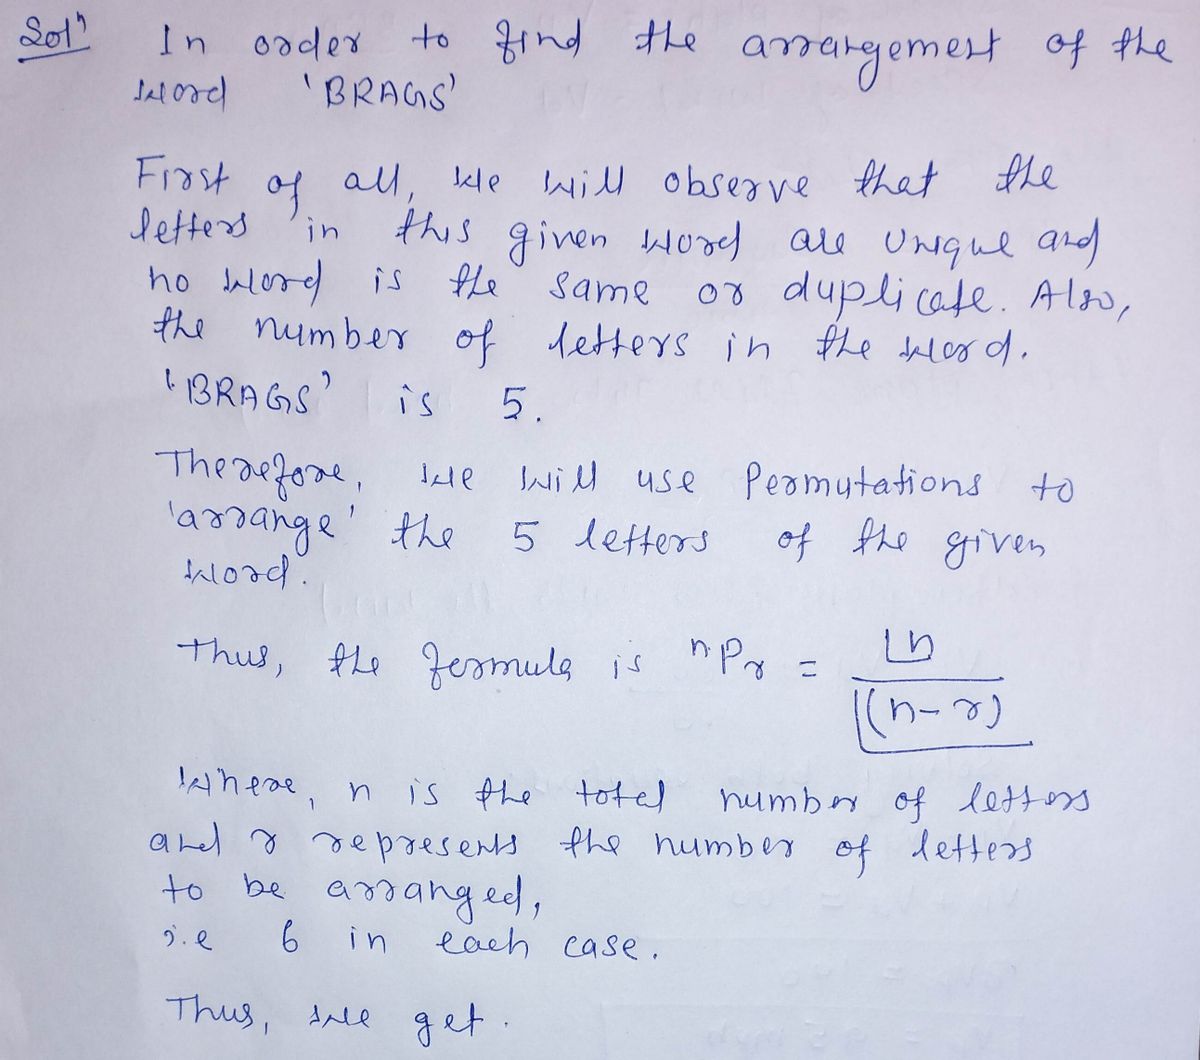 Solⁿ In order to find the arrangement of the
word 'BRAGS'
First of all, we will observe that the
letters in this given word are unique and
no word is the same or duplicate. Also,
the number of letters in the word.
'BRAGS' is 5.
Therefore, we will use Permutations to
'arrange' the 5 letters of the given
word.
Thus, the formula is ⁿPᵣ = |n / |(n-r)
Where, n is the total number of letters
and r represents the number of letters
to be arranged,
i.e 6 in each case.
Thus, we get.